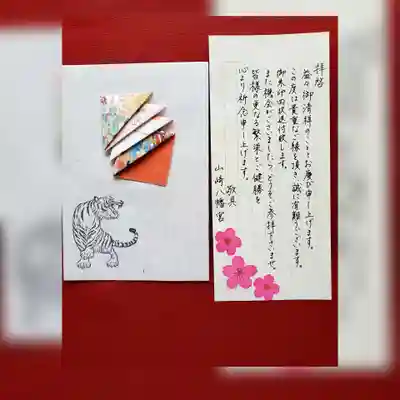 拝啓
益々御清祥のこととお慶び申し上げます。
この度は貴重なご縁を頂き、誠に有難うございます。
御朱印同状送付致します。
また機会がございましたら、どうぞご参拝下さいませ。
皆様の更なる繁栄と、ご健勝を
心より祈念申し上げます。
敬具
山崎八幡宮